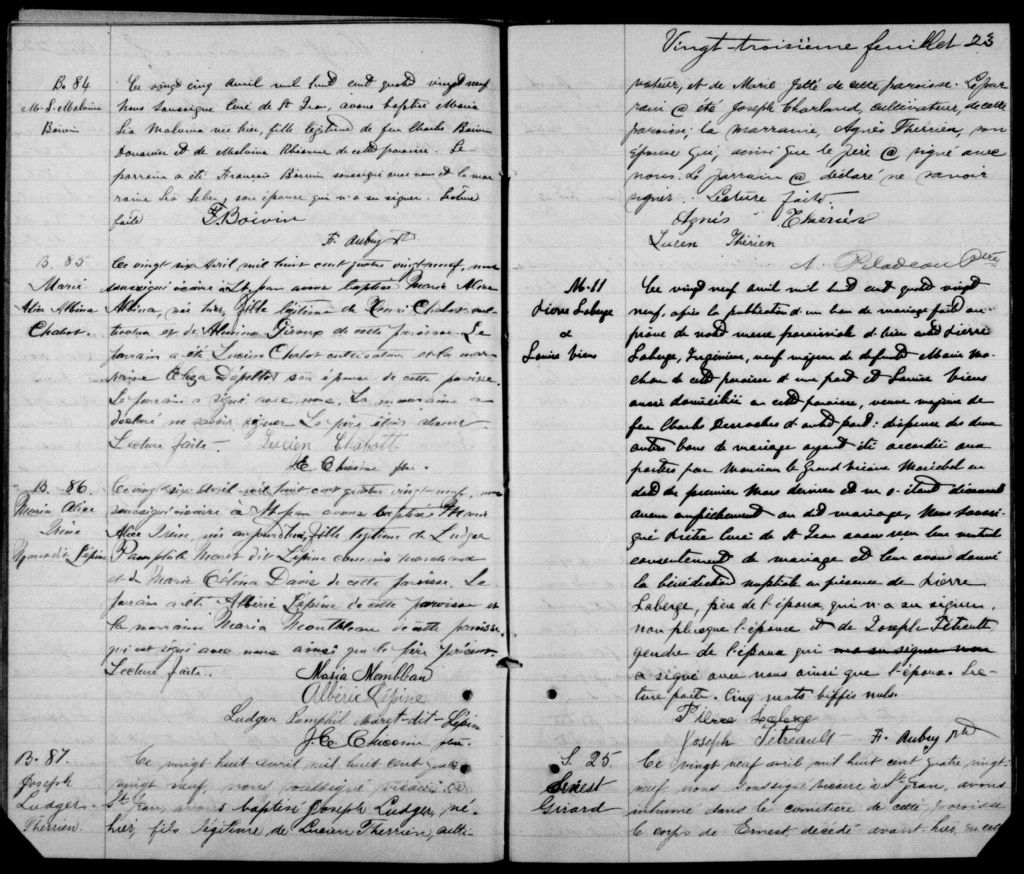 B. 84
M. L. Malvina
Boivin
Ce vingt cinq avril mil huit cent quatre vingt neuf
Nous soussigné Curé de St Jean, avons baptisé Maria
Léa Malvina née hier, fille légitime de feu Charles Boivin
Douanier et de Malvina de cette paroisse. Le
parrain a été François Boivin soussigné avec nous et la mar
raine Léa son épouse qui n'a su signer. Lecture
faite
F. Boivin
F. Aubry Ptre
B. 85
Marie
Alice Albina
Chabot.
Ce vingt six Avril, mil huit cent quatre vingt neuf, nous
soussigné vicaire à St Jean avons baptisé Marie Alice
Albina, née hier, fille légitime de Henri Chabot, cul
tivateur et de Giroux de cette paroisse. Le
parrain a été Lucien Chabot cultivateur et la mar
raine son épouse de cette paroisse.
Le parrain a signé avec nous. La marraine a
déclaré ne savoir signer. Le père était absent.
Lecture faite. Lucien Chabott
ptre.
B. 86.
Maria Alice
Irène
Maret dit Lépine
Ce vingt six Avril mil huit cent quatre vingt neuf, nous
soussigné vicaire à St Jean avons baptisé Maria
Alice Irène, née aujourd'hui, fille légitime de Ludger
Pamphile Maret dit Lépine commis marchand
et de Marie Célina Davis de cette paroisse. Le
parrain a été Albéric Lépine de cette paroisse et
la marraine Maria Montbleau de cette paroisse
qui ont signé avec nous ainsi que le père présent.
Lecture faite.
Maria Mombleau
Albéric Lépine
Ludger Pemphil Maret-dit-Lépine
ptre.
B. 87.
Joseph
Ludger
Therrien.
Ce vingt huit avril mil huit cent quatre
vingt neuf, nous soussigné vicaire à
St Jean, avons baptisé Joseph Ludger, né
hier, fils légitime de Lucien Therrien, culti-
Vingt-troisième feuillet 23
vateur, et de Marie de cette paroisse. Le par
rain a été Joseph Charland, cultivateur, de cette
paroisse; la marraine, Agnès Therrien, son
épouse qui, ainsi que le père a signé avec
nous. Le parrain a déclaré ne savoir
signer. Lecture faite.
Agnés Therrien
Lucien Thérien
A. Péladeau Ptre
M. 11
Pierre Laberge
&
Louise Viens
Ce vingt neuf avril mil huit cent quatre vingt
neuf, après la publication d'un ban de mariage faite au
prône de notre messe paroissiale et bien entre Pierre
Laberge, Ingénieur, veuf majeur de defunte Marie
de cette paroisse d'une part et Louise Viens
aussi domiciliée en cette paroisse, veuve majeure de
feu Charles Desroches d'autre part; dispense des deux
autres bans de mariage ayant été accordée aux
parties par Monsieur le Grand Vicaire Maréchal en
date du premier Mars dernier et ne s'étant découvert
aucun empêchement au dit mariage, Nous soussi-
gné Prêtre Curé de St Jean avons reçu leur mutuel
consentement de mariage et leur avons donné
la bénédiction nuptiale en présence de Pierre
Laberge, père de l'époux, qui n'a su signer,
non plus que l'épouse et de Joseph Tétrault
gendre de l'époux qui
a signé avec nous ainsi que l'époux. Lec-
ture faite. Cinq mots biffés nuls.
Pierre Laberge
Joseph Tétreault F. Aubry Ptre
S. 25
Ernest
Girard
Ce vingt neuf avril mil huit cent quatre vingt-
neuf nous soussigné vicaire à St Jean, avons
inhumé dans le cimetière de cette paroisse
le corps de Ernest, décédé avant hier, en cette